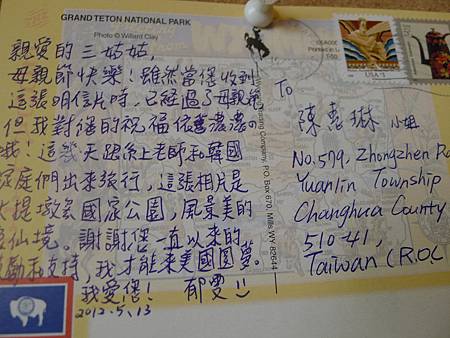 GRAND TETON NATIONAL PARK
Photo © Willard Clay
親愛的三姑姑,
母親節快樂!雖然當您收到
這張明信片時,已經過了母親節
但我對您的祝福依舊濃濃的
哦!這幾天跟系上老師和韓國
家庭們出來旅行,這張相片是
大提頓國家公園,風景美的
仙境。謝謝您一直以來的
鼓勵和支持,我才能來美國圓夢。
我愛您! 郁雯
2012.5.13
To
陳惠琳 小姐
No.579, Zhongzhen Rd
Yuanlin Township
Changhua County
510-41,
Taiwan (ROC
Co., P.O. Box 670, Mills WY 82644
USA